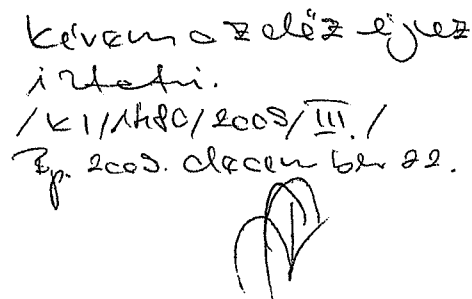 Kérem az előző ügyhöz
iktatni.
/KI/1480/2009/III./
Bp. 2009. december 22.